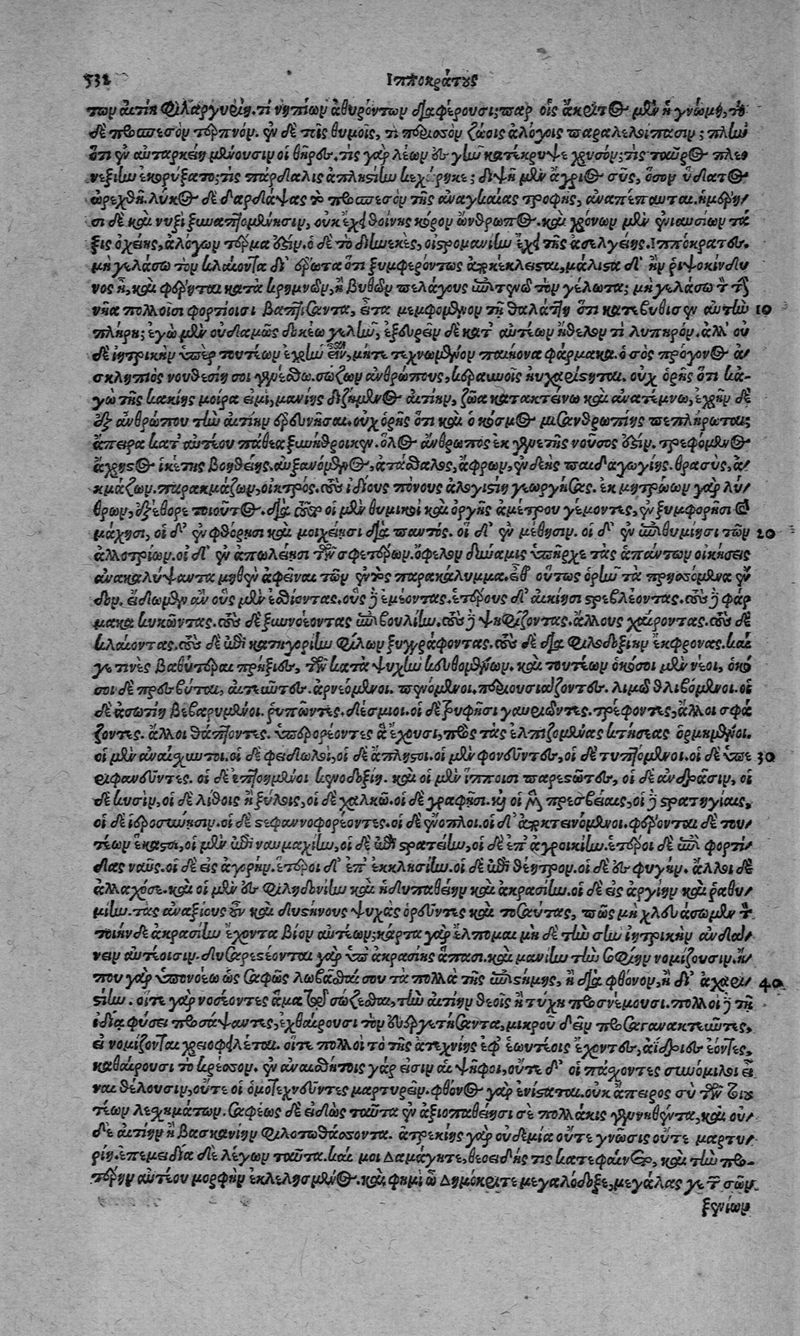 532 Ἱπποκράτους
των αἰτίη φιλαργυρίη. τί νηπίων ἀθυρόντων διαφέρουσι; παρ οἷς ἄκριτος μὲν ἡ γνώμη, τὸ
δὲ προσπεσὸν τερπνόν. ἐν δὲ τοῖς θυμοῖς, τί περισσὸν ζώοις ἀλόγοις παραλελοίπασιν; πλὴν
ὅτι ἐν αὐταρκείῃ μένουσιν οἱ θῆρες. τίς γὰρ λέων ἐς γῆν κατέκρυψε χρυσόν; τίς ταῦρος πλεο
νεξίην ἐκορύξατο; τίς πάρδαλις ἀπληστίην κεχώρηκε; διψῇ μὲν ἄγριος σῦς, ὅσον ὕδατος
ὠρέχθη. λύκος δὲ δαρδάψας τὸ προσπεσὸν τῆς ἀναγκαίας τροφῆς, ἀναπέπαυται. ἡμέρῃ
σι δὲ καὶ νυξὶ ξυναπτομένῃσιν, οὐκ ἔχει θοίνης κόρον ὤνθρωπος. καὶ χρόνων μὲν ἐνιαυσίων τά
ξις ὀχείης, ἀλόγων τέρμα ἐστίν. ὁ δὲ τὸ διηνεκὲς, οἰστρομανίην ἔχει τῆς ἀσελγείης. Ἱππόκρατες.
μὴ γελάσω τὸν κλαίοντα δι' ἔρωτα ὅτι ξυμφερόντως ἀποκέκλεισται, μάλιστα δ' ἢν ῥιψοκίνδυ
νος ᾖ, καὶ φέρηται κατὰ κρημνῶν, ἢ βυθῶν πελάγους ἐπιτείνω τὸν γέλωτα; μὴ γελάσω τὸν τὴν
νῆα πολλοῖσι φορτίοισι βαπτίσαντα, εἶτα μεμφόμενον τῇ θαλάττῃ ὅτι κατεβύθισεν αὐτὴν 10
πλήρη; ἐγὼ μὲν οὐδαμῶς δοκέω γελῆν, ἐξευρεῖν δὲ κατ' αὐτέων ἤθελον τι λυπηρόν. ἀλλ' οὐ
δὲ ἰητρικὴν ὑπὲρ τουτέων ἐχρῆν εἶναι, μήτε τεχνωμένον παιήονα φάρμακα. ὁ σὸς πρόγονος ἀ
σκληπιὸς νουθεσίη σοι γινέσθω. σώζων ἀνθρώπους, κεραυνοῖς ηὐχαρίστηται. οὐχ ὁρῇς ὅτι κἀ
γὼ τῆς κακίης μοίρα εἰμὶ, μανίης διζήμενος αἰτίην, ζῶα κατακτείνω καὶ ἀνατέμνω, ἐχρῆν δὲ
ἐξ ἀνθρώπου τὴν αἰτίην ἐρευνῆσαι. οὐχ ὁρῇς ὅτι καὶ ὁ κόσμος μισανθρωπίης πεπλήρωται;
ἄπειρα κατ' αὐτέου πάθεα ξυνήθροικεν. ὅλος ἄνθρωπος ἐκ γενετῆς νοῦσος ἐστίν. τρεφόμενος
ἄχρηστος ἱκέτης βοηθείης. αὐξανόμενος, ἀτάσθαλος, ἄφρων, ἐνδεὴς παιδαγωγίης. θρασὺς, ἀ
κμάζων. παρακμάζων, οἰκτρός. τοὺς ἰδίους πόνους ἀλογιστίῃ γεωργήσας. ἐκ μητρώων γὰρ λύ
θρων, ἐξέθορε τοιοῦτος. διὰ τοῦτο οἱ μὲν θυμικοὶ καὶ ὀργῆς ἀμέτρου γέμοντες, ἐν ξυμφορῇσι καὶ
μάχῃσι, οἱ δ' ἐν φθορῇσι καὶ μοιχείῃσι διὰ παντός. οἱ δ' ἐν μέθῃσιν. οἱ δ' ἐν ἐπιθυμίῃσι τῶν 20
ἀλλοτρίων. οἱ δ' ἐν ἀπωλείῃσι τῶν σφετέρων. ὄφελον δύναμις ὑπῆρχε τὰς ἁπάντων οἰκήσεις
ἀνακαλύψαντα μηθὲν ἀφεῖναι τῶν ἐντὸς παρακάλυμμα. εἶθ' οὕτως ὁρῆν τὰ πρησσόμενα ἔν
δον. εἴδομεν ἂν οὓς μὲν ἐσθίοντας. οὓς δὲ ἐμέοντας. ἑτέρους δ' αἰκίῃσι στρεβλέοντας. τοὺς δὲ φάρ
μακα κυκῶντας. τοὺς δὲ ξυννοέοντας ἐπιβουλίην. τοὺς δὲ ψηφίζοντας. ἄλλους χαίροντας. τοὺς δὲ
κλαίοντας. τοὺς δὲ ἐπὶ κατηγορίην φίλων ξυγγράφοντας. τοὺς δὲ διὰ φιλοδοξίην ἔκφρονας. καί
γέ τινες βαθύτεραι πρήξιες, τῶν κατὰ ψυχὴν κευθομένων. καὶ τουτέων ὁκόσοι μὲν νέοι, ὁκό
σοι δὲ πρεσβῦται, αἰτεῦντες. ἀρνεόμενοι. πενόμενοι. περιουσιάζοντες. λιμῷ θλιβόμενοι. οἱ
δὲ ἀσωτίῃ βεβαρυμένοι. ῥυπῶντες. δέσμιοι. οἱ δὲ τρυφῇσι γαυριῶντες. τρέφοντες, ἄλλοι σφά
ζοντες. ἄλλοι θάπτοντες. ὑπερορέοντες ἃ ἔχουσι, πρὸς τὰς ἐλπιζομένας κτήσιας ὁρμημένοι.
οἱ μὲν ἀναίσχυντοι. οἱ δὲ φειδωλοὶ, οἱ δὲ ἄπληστοι. οἱ μὲν φονεῦντες, οἱ δὲ τυπτόμενοι. οἱ δὲ ὑπε 30
ρηφανεῦντες. οἱ δὲ ἐπτοημένοι κενοδοξίῃ. καὶ οἱ μὲν ἵπποισι παρεστῶτες, οἱ δὲ ἀνδράσιν, οἱ
δὲ κυσὶν, οἱ δὲ λίθοις ἢ ξύλοις, οἱ δὲ χαλκῷ. οἱ δὲ γραφῇσι. καὶ οἱ μὲν πρεσβείαις, οἱ δὲ στρατηγίαις,
οἱ δὲ ἱεροσύνῃσιν. οἱ δὲ στεφανοφορέοντες. οἱ δὲ ἔνοπλοι. οἱ δ' ἀποκτεινόμενοι. φέρονται δὲ του
τέων ἕκαστοι, οἱ μὲν ἐπὶ ναυμαχίην, οἱ δὲ ἐπὶ στρατείην, οἱ δὲ ἐπ' ἀγροικίην. ἕτεροι δὲ ἐπὶ φορτί
δας ναῦς. οἱ δὲ εἰς ἀγορήν. ἕτεροι δ' ἐπ' ἐκκλησίην. οἱ δὲ ἐπὶ θέητρον. οἱ δὲ ἐς φυγήν. ἄλλοι δὲ
ἀλλαχόσε. καὶ οἱ μὲν ἐς φιληδονίην καὶ ἡδυπαθείην καὶ ἀκρασίην. οἱ δὲ εἰς ἀργίην καὶ ῥαθυ
μίην. τὰς ἀναξίους οὖν καὶ δυστήνους ψυχὰς ὁρεῦντες καὶ τοσαύτας, πῶς μὴ χλευάσωμεν τὸν
τοιήνδε ἀκρασίην ἔχοντα βίον αὐτέων; κάρτα γὰρ ἔλπομαι μηδὲ τὴν σὴν ἰητρικὴν ἁνδά
νειν αὐτέοισιν. δυσαρεστέονται γὰρ ὑπὸ ἀκρασίης ἅπασι. καὶ μανίην τὴν σοφίην νομίζουσιν. ἦ
που γὰρ ὑπονοέω ὡς σαφῶς λωβᾶσθαί σου τὰ πολλὰ τῆς ἐπιστήμης, ἢ διὰ φθόνον, ἢ δι' ἀχαρι 40
στίην. οἵ τε γὰρ νοσέοντες ἅμα τῷ σώζεσθαι, τὴν αἰτίην θεοῖς ἢ τύχῃ προσνέμουσι. πολλοὶ δὲ τῇ
ἰδίᾳ φύσει προσάψαντες, ἐχθαίρουσι τὸν εὐεργετήσαντα, μικροῦ δεῖν προσαγανακτεῦντες,
εἰ νομίζονται χρεοφειλέται. οἵ τε πολλοὶ τὸ τῆς ἀτεχνίης ἐφ' ἑωυτέοις ἔχοντες, ἀίδριες ἐόντες,
καθαιρουσι τὸ κρέσσον. ἐν ἀναισθήτοις γάρ εἰσιν αἱ ψῆφοι, οὔτε δ' οἱ πάσχοντες συνομιλοι εἶ
ναι θέλουσιν, οὔτε οἱ ὁμοτεχνεῦντες μαρτυρεῖν. φθόνος γὰρ ἐνίσταται. οὐκ ἄπειρος σὺ τῶν του
τέων λεχημάτων. σαφέως δὲ εἰδὼς ταῦτα ἐν ἀξιοπαθείῃσι σὲ πολλάκις γενηθέντα, καὶ οὐ
δὲ αἰτίην ἢ βασκανίην φιλοτωθάσοντα. ἀτρεκίης γὰρ οὐδεμία οὔτε γνῶσις οὔτε μαρτυ
ρίη. ἐπεμειδία δὲ λέγων ταῦτα. καί μοι Δαμάγητε, θεοειδής τις κατεφαίνετο, καὶ τὴν προ
τέρην αὐτέου μορφὴν ἐκλελησμένος. καὶ φημὶ ὦ Δημόκριτε μεγαλόδοξε, μεγάλας γε τῶν σῶν
ξενίων